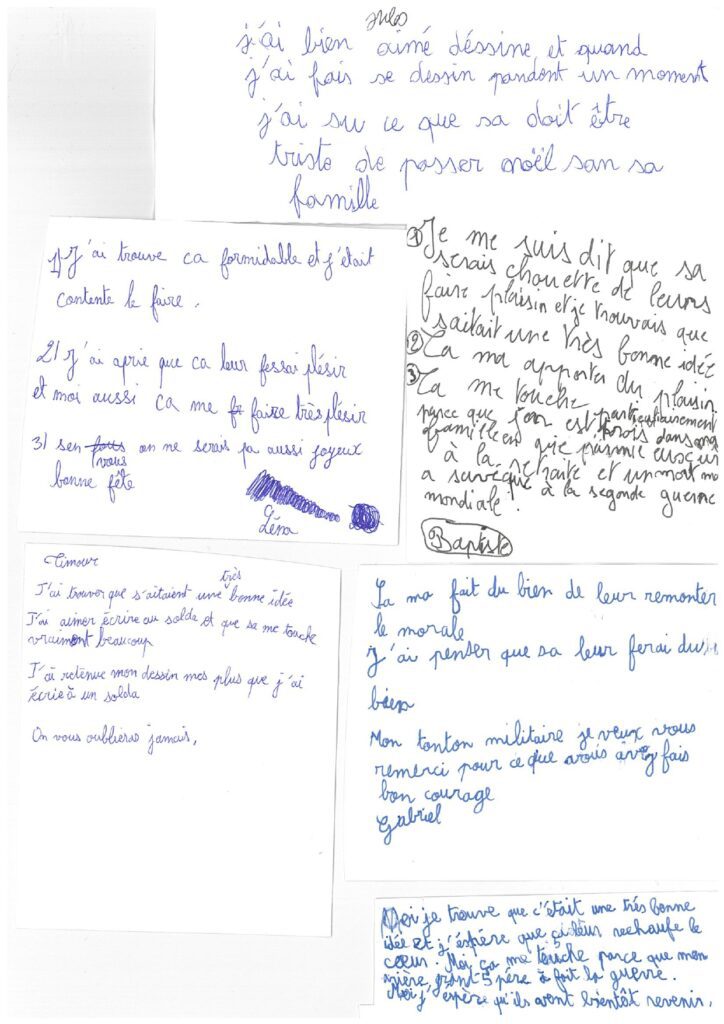 Jules
j'ai bien aimé déssine et quand
j'ai fais se dessin pandant un moment
j'ai su ce que sa doit être
triste de passer noël san sa
famille
1) J'ai trouve ca formidable et j'était
contente le faire.
2) J'ai aprie que ca leur fessai plésir
et moi aussi ca me faire très plésir
3) sen vous on ne serais pa aussi joyeux
bonne fête
Léna
① Je me suis dit que sa
serais chouette de leurs
faire plaisir et je trouvais que
saitait une très bonne idée
② Ca ma apporter du plaisir
③ Ca me touche particulièrement
parce que j'en est trois dans ma
famille
à la retraite et un mort
à la segonde guerre
mondiale!
Baptiste
Timour
J'ai trouver que s'aitaient une très bonne idée
J'ai aimer écrire au solda et que sa me touche
vraiment beaucoup
J'ai retenue mon dessin mes plus que j'ai
écrie à un solda
On vous oublieras jamais,
Sa ma fait du bien de leur remonter
le morale
J'ai penser que sa leur ferai du
bien
Mon tonton militaire je veux vous
remerci pour ce que vous avez fais
bon courage
Gabriel
Moi je trouve que c'était une trés bonne
idée et j'éspére que ci leur rechaufe le
cœur. Moi ça me touche parce que mon
arière grant père à fait la guerre.
Moi j'éspère qu'ils vont bientôt revenir.